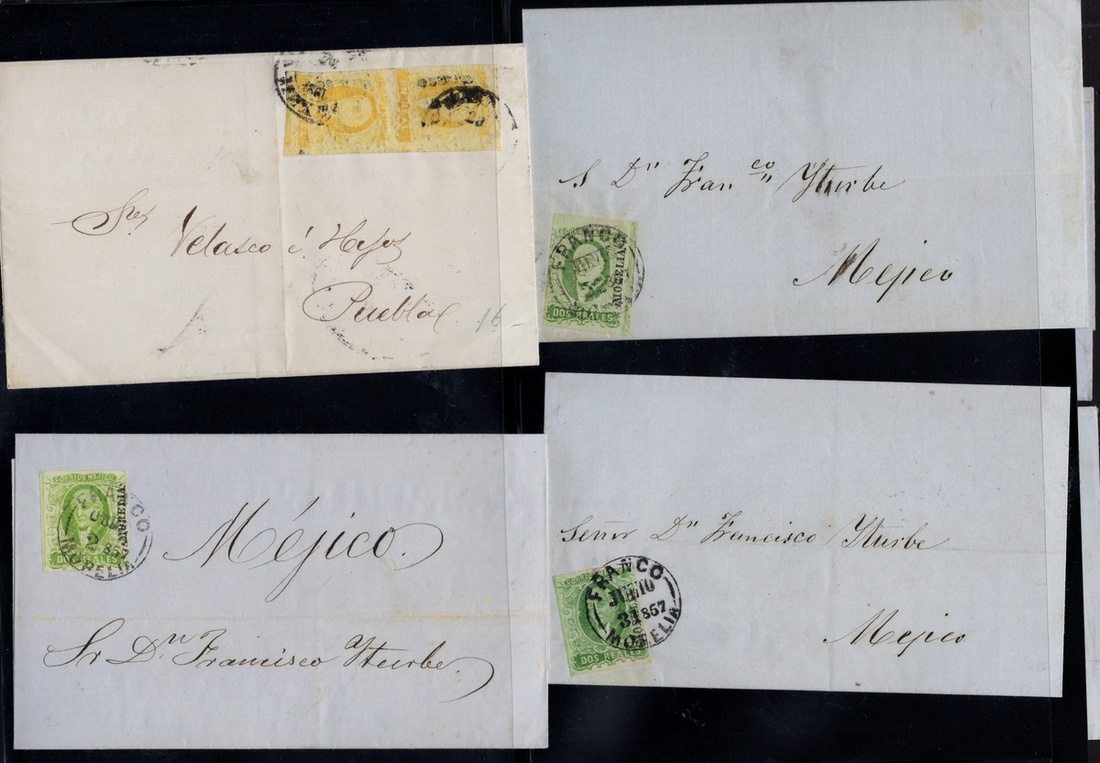 Velasco é Hijos
Puebla
16-
S Dn Franco Yturbe
Mejico
FRANCO
MORELIA
DOS REALES
Méjico.
Sr Dn Francisco Yturbe
CORREOS MEJICO
FRANCO
2 85
MORELIA
MORELIA
DOS REALES
Señor Dn Francisco Yturbe
Mejico
FRANCO
JULIO
31 857
MORELIA
DOS REALES